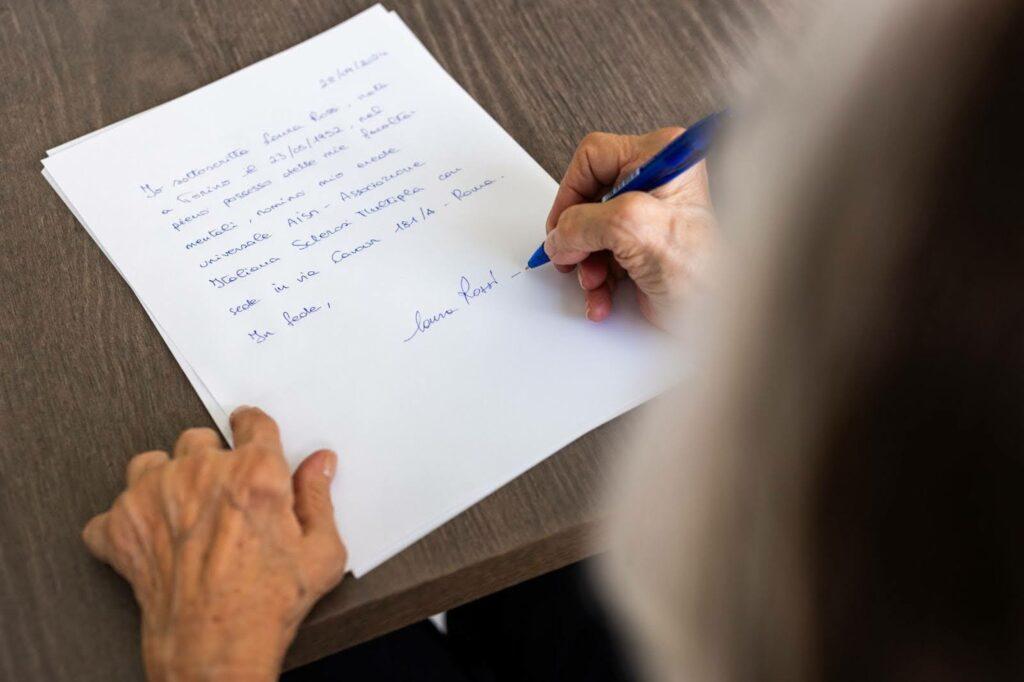 Io sottoscritta Laura Rossi, nata
a Torino il 23/05/1952, nel
pieno possesso delle mie facoltà
mentali, nomino mio erede
universale AISM - Associazione
Italiana Sclerosi Multipla con
sede in via Cavour 181/A - Roma.
In fede,
Laura Rossi